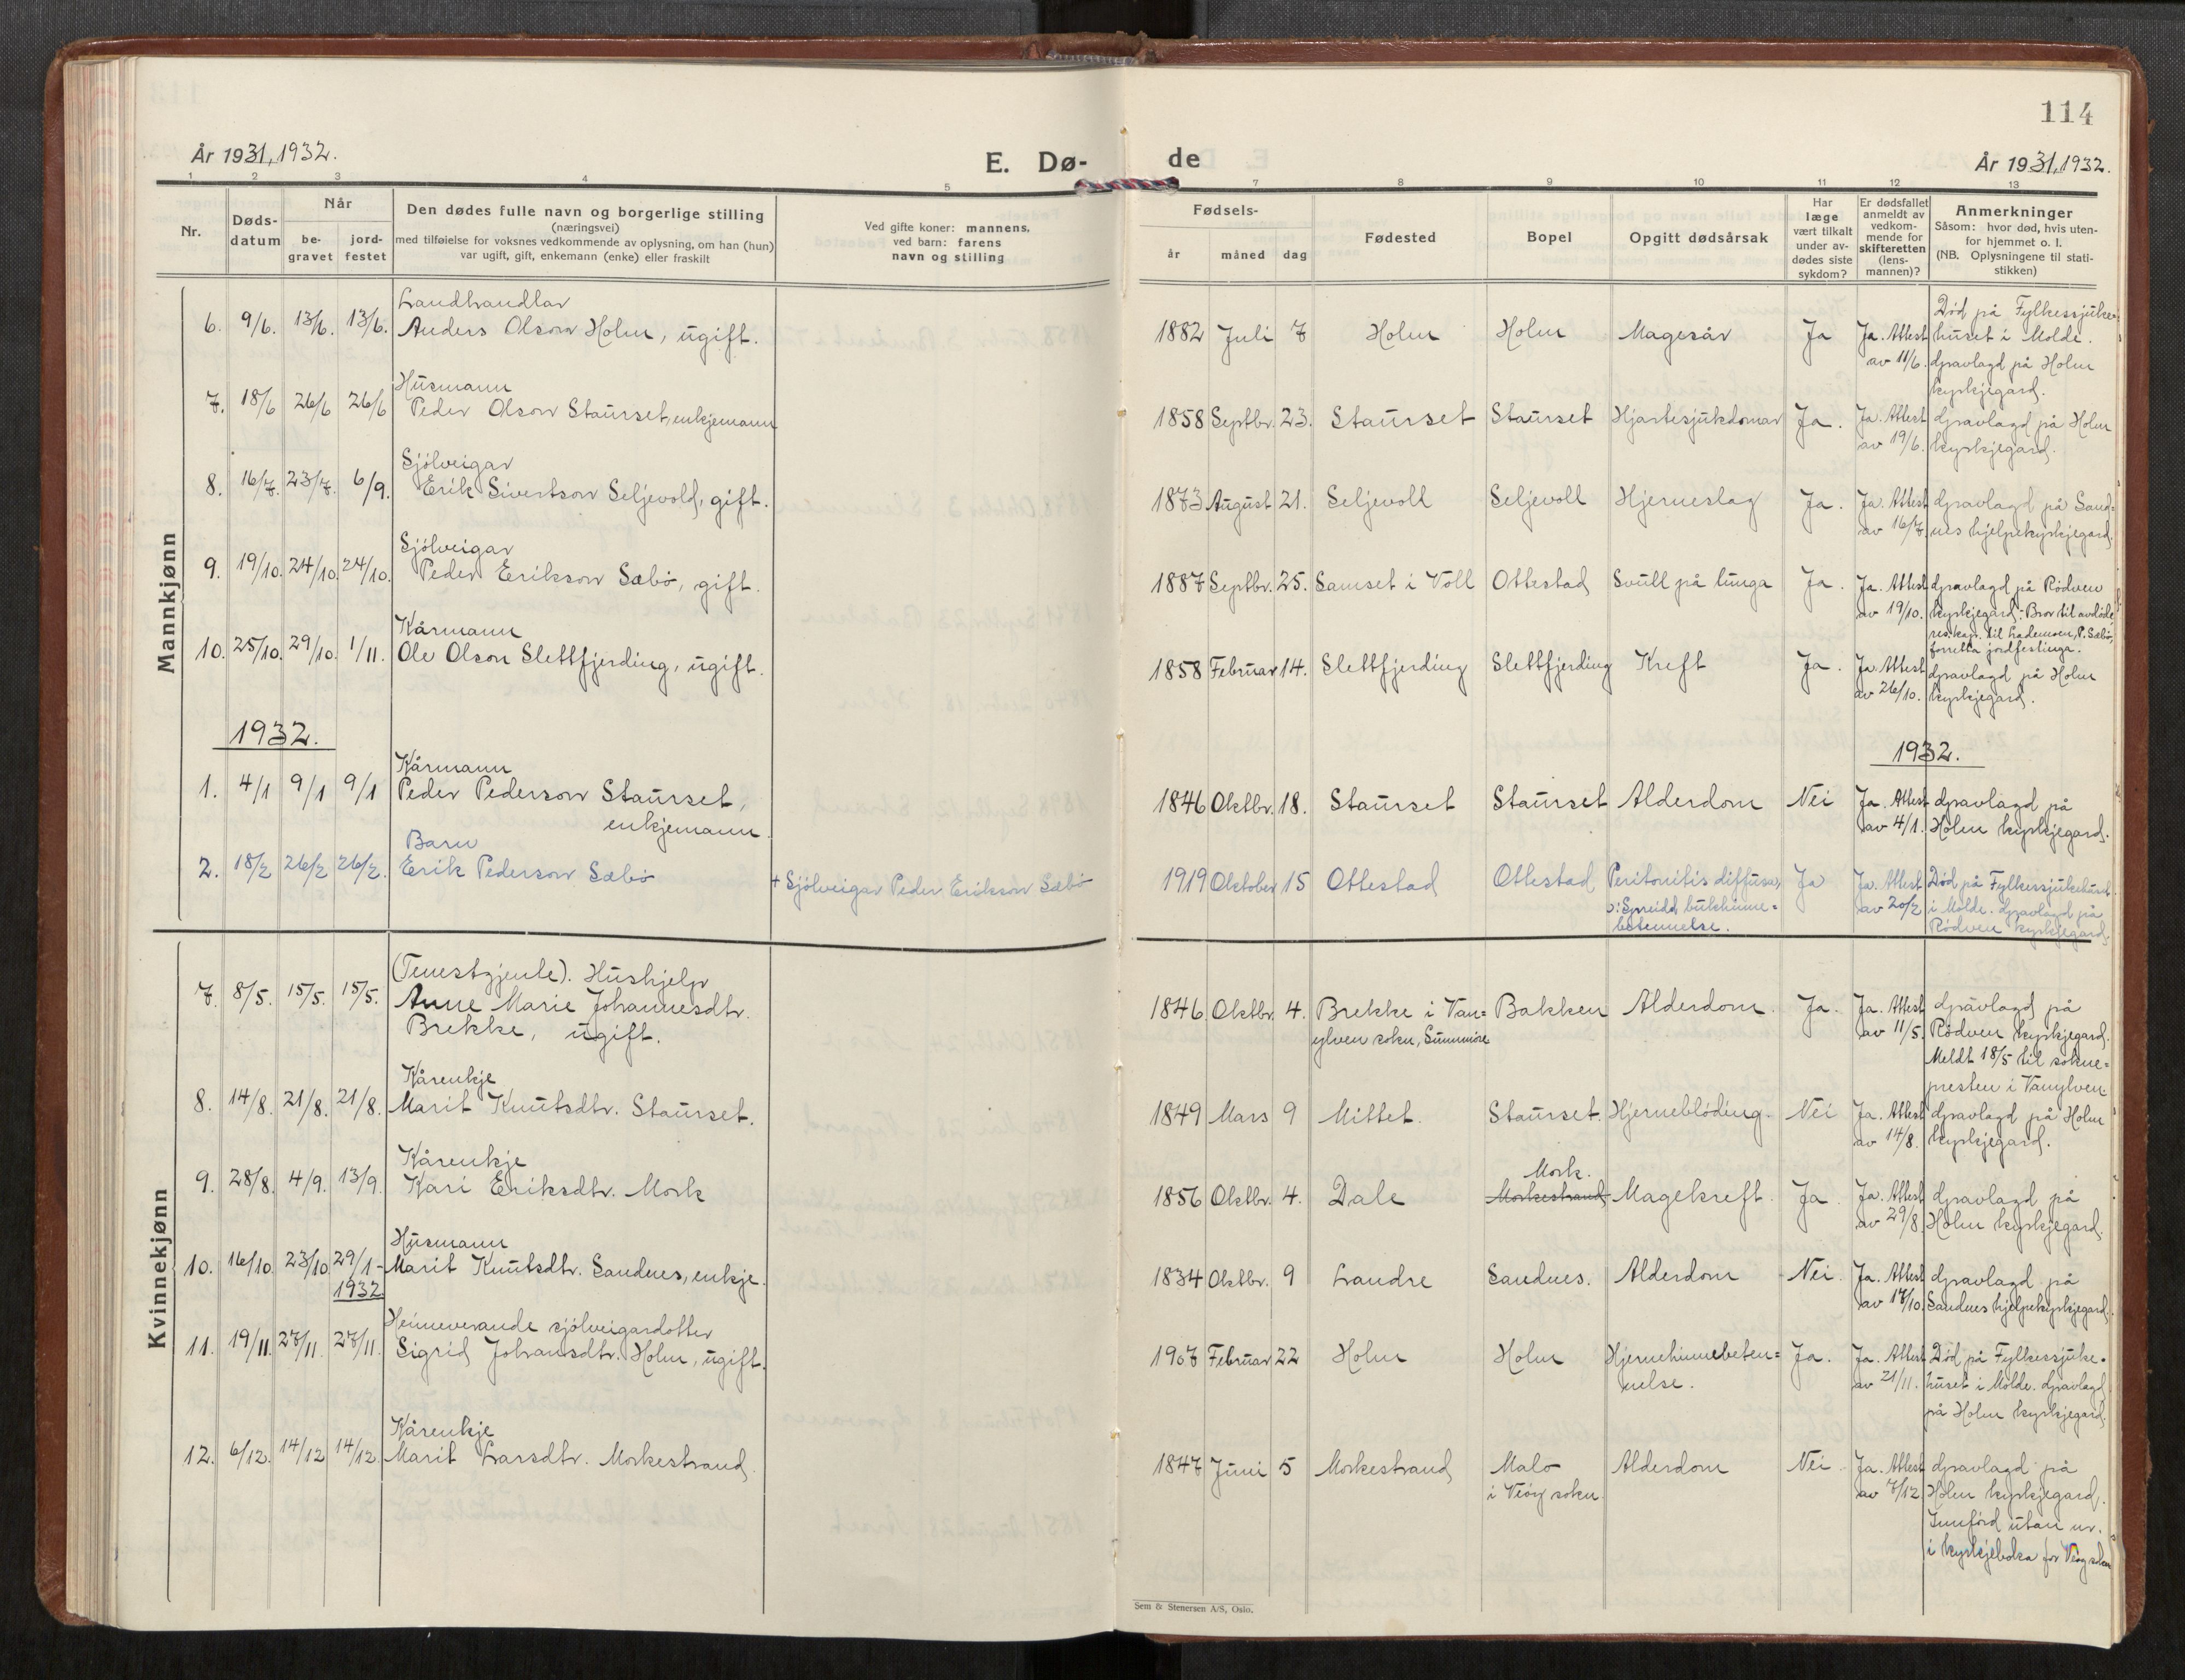 114
År 1931, 1932.
E. Dø-
de
År 1931, 1932.
1 2 3 4 5 7 8 9 10 11 12 13
Nr.
Døds-
datum
Når
be-
gravet
jord-
festet
Den dødes fulle navn og borgerlige stilling
(næringsvei)
med tilføielse for voksnes vedkommende av oplysning, om han (hun)
var ugift, gift, enkemann (enke) eller fraskilt
Ved gifte koner: mannens,
ved barn: farens
navn og stilling
Fødsels-
år måned dag
Fødested
Bopel
Opgitt dødsårsak
Har
læge
vært tilkalt
under av-
dødes siste
sykdom?
Er dødsfallet
anmeldt av
vedkom-
mende for
skifteretten
(lens-
mannen)?
Anmerkninger
Såsom: hvor død, hvis uten-
for hjemmet o. l.
(NB. Oplysningene til stati-
stikken)
Mannkjønn
Landhandlar
6. 9/6. 13/6. 13/6. Anders Olson Holm, ugift. 1882 Juli 7 Holm Holm Magesår Ja Ja. Attest av 11/6.
Død på Fylkessjuke-
huset i Molde.
Gravlagd på Holm
kyrkjegard.
Husmann
7. 18/6 26/6 26/6 Peder Olson Staurset, enkjemann 1858 Septbr. 23. Staurset Staurset Hjartesjukdomar Ja. Ja. Attest av 19/6.
Gravlagd på Holm
kyrkjegard.
Sjölveigar
8. 16/7. 23/7. 6/9. Erik Sivertson Seljevold, gift. 1873 August 21. Seljevoll Seljevoll Hjerneslag Ja. Ja. Attest av 16/7.
Gravlagd på Sand=
nes hjelpekyrkjegard.
Sjölveigar
9. 19/10. 24/10. 24/10. Peder Erikson Sæbö, gift. 1887 Septbr. 25. Samset i Voll Ottestad Svull på lunga Ja. Ja. Attest av 19/10.
Gravlagd på Rödven
kyrkjegard. Bror til avdöde,
res.kap. til Lademoen, P. Sæbö,
forretta jordfestinga.
Kårmann
10. 25/10. 29/10. 1/11. Ole Olson Slettfjerding, ugift. 1858 Februar 14. Slettfjerding Slettfjerding Kreft Ja. Ja. Attest av 26/10.
Gravlagd på Holm
kyrkjegard.
1932.
1932.
Kårmann
1. 4/1 9/1 9/1 Peder Pederson Staurset,
enkjemann. 1846 Oktbr. 18. Staurset Staurset Alderdom Nei Ja. Attest av 4/1.
Gravlagd på
Holm kyrkjegard.
Barn
2. 18/2 26/2 26/2. Erik Pederson Sæbö + Sjölveigar Peder Erikson Sæbö 1919 Oktober 15 Ottestad Ottestad Peritonitis diffusa,
ɔ: Spreidd bukhinne=
betennelse. Ja Ja. Attest av 20/2
Död på Fylkessjukehuset
i Molde. Gravlagd på
Rödven kyrkjegard.
Kvinnekjønn
(Tenestgjente). Hushjelp
7. 8/5. 15/5. 15/5. Anne Marie Johannesdtr.
Brekke, ugift. 1846 Oktbr. 4. Brekke i Van=
ylven sokn, Sunnmöre Bakken Alderdom. Ja. Ja. Attest av 11/5.
Gravlagd på
Rödven kyrkjegard.
Meldt 18/5 til sokne=
presten i Vanylven.
Kårenkje
8. 14/8. 21/8. 21/8. Marit Knutsdtr. Staurset. 1849 Mars 9 Mittet. Staurset. Hjerneblöding. Nei Ja. Attest av 14/8.
Gravlagd på Holm
kyrkjegard.
Kårenkje
9. 28/8. 4/9. 13/9 Kari Eriksdtr. Mork 1856 Oktbr. 4. Dale Mork.
Morkestrand Magekreft. Ja. Ja. Attest av 29/8
Gravlagd på
Holm kyrkjegard.
Husmann
10. 16/10. 23/10 29/1-
1932 Marit Knutsdtr. Sandnes, enkje. 1834 Oktbr. 9 Landre Sandnes. Alderdom Nei. Ja. Attest av 17/10.
Gravlagd på
Sandnes hjelpekyrkjegard.
Heimeverande sjölveigardotter
11. 19/11. 27/11. 27/11. Sigrid Johansdtr. Holm, ugift. 1907 Februar 22 Holm Holm Hjernehinnebeten=
nelse. Ja. Ja. Attest av 21/11.
Död på Fylkessjuke-
huset i Molde. Gravlagd
på Holm kyrkjegard.
Kårenkje
12. 6/12. 14/12 14/12 Marit Larsdtr. Morkestrand. 1847 Juni 5 Morkestrand Malo
i Veöy sokn. Alderdom Nei Ja. Attest av 7/12.
Gravlagd på
Holm kyrkjegard.
Innförd utan nr.
i kyrkjeboka for Veöy sokn
Sem & Stenersen A/S, Oslo.